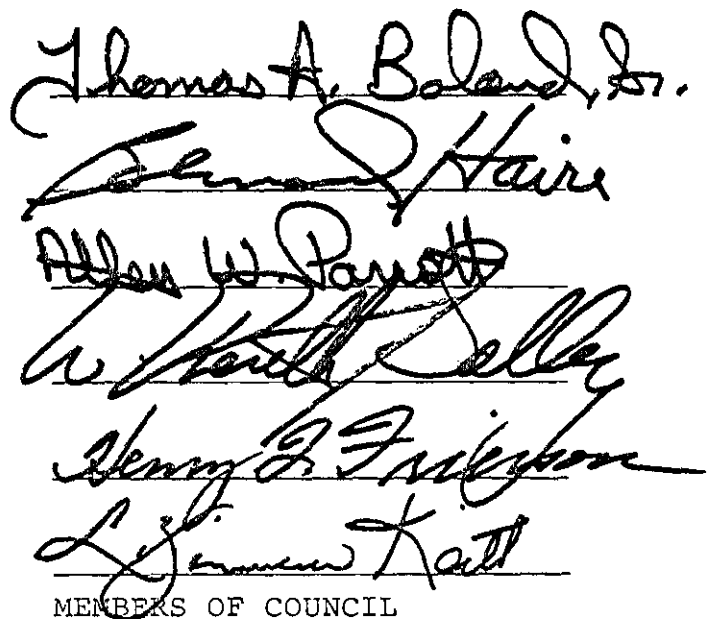 Thomas A. Boland, Sr.
Haire
Allen W. Parrott
W. Kelley
Henry F. Frierson
L. Zimmerman Keitt
MEMBERS OF COUNCIL